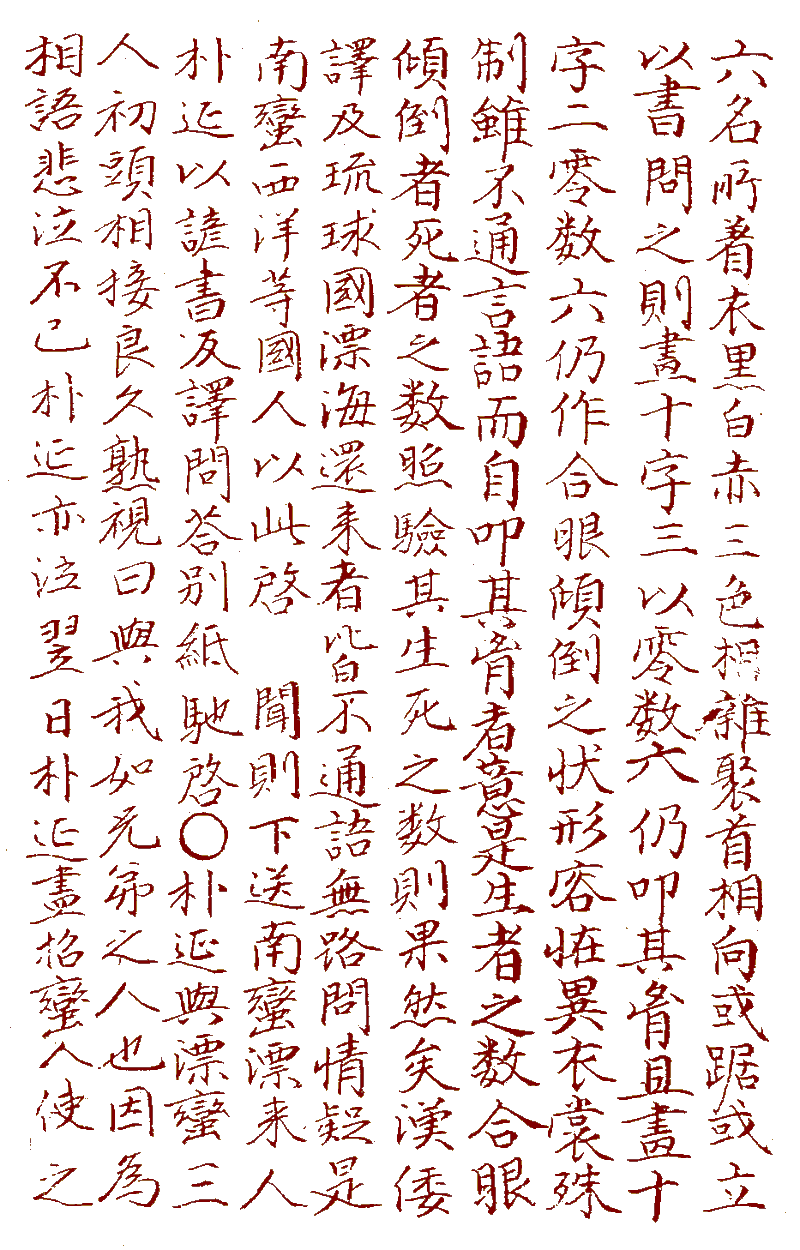 六名所着衣黒白赤三色相雜聚首相向或踞或立
以書問之則畫十字三以零数六仍叩其脊且畫十
字二零数六仍作合眼傾倒之状形容恠異衣裳殊
制雖不通言語而自叩其脊者意是生者之数合眼
傾倒者死者之数照驗其生死之数則果然矣漢倭
譯及琉球國漂海還来者皆不通語無路問情疑是
南蠻西洋等國人以此啓 聞則下送南蠻漂来人
朴延以諺書反譯問答別紙馳啓〇朴延與漂蠻三
人初頭相接良久熟視曰與我如兄弟之人也因為
相語悲泣不已朴延亦泣翌日朴延盡招蠻人使之